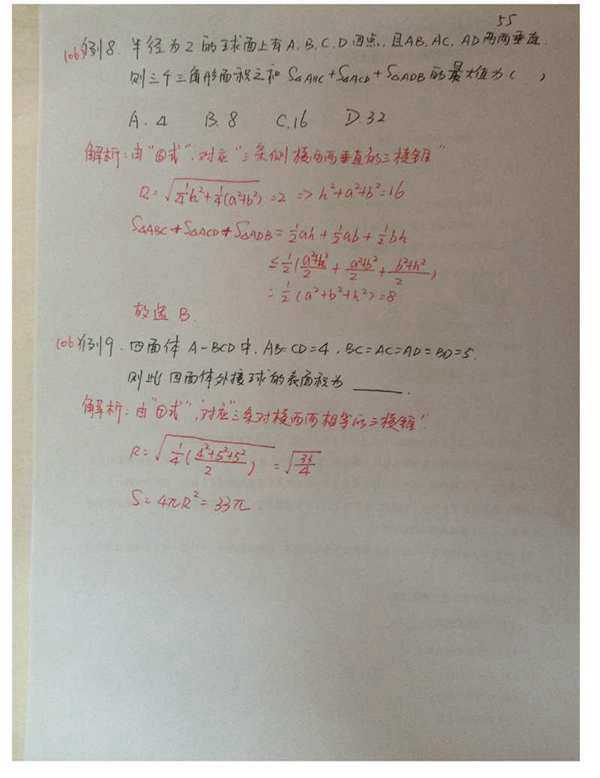 55
(06)例8. 半径为2的球面上有A.B.C.D四点.且AB,AC,AD两两垂直
则三个三角形面积之和 S△ABC+S△ACD+S△ADB的最大值为( )
A. 4 B. 8 C. 16 D. 32
解析:由"四式",对应"三条侧棱两两垂直的三棱锥"
R=√(1/4h²+1/4(a²+b²))=2 => h²+a²+b²=16
S△ABC+S△ACD+S△ADB=1/2ah+1/2ab+1/2bh
≤1/2((a²+h²)/2+(a²+b²)/2+(b²+h²)/2)
=1/2(a²+b²+h²)=8
故选B.
(06)例9. 四面体A-BCD中,AB=CD=4,BC=AC=AD=BD=5.
则此四面体外接球的表面积为
解析:由"四式",对应"三条对棱两两相等的三棱锥"
R=√(1/4((4²+5²+5²)/2))=√(33/4)
S=4πR²=33π